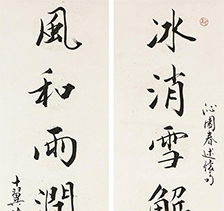 冰消雪解
沁園春述懷句
風和雨潤
十翼